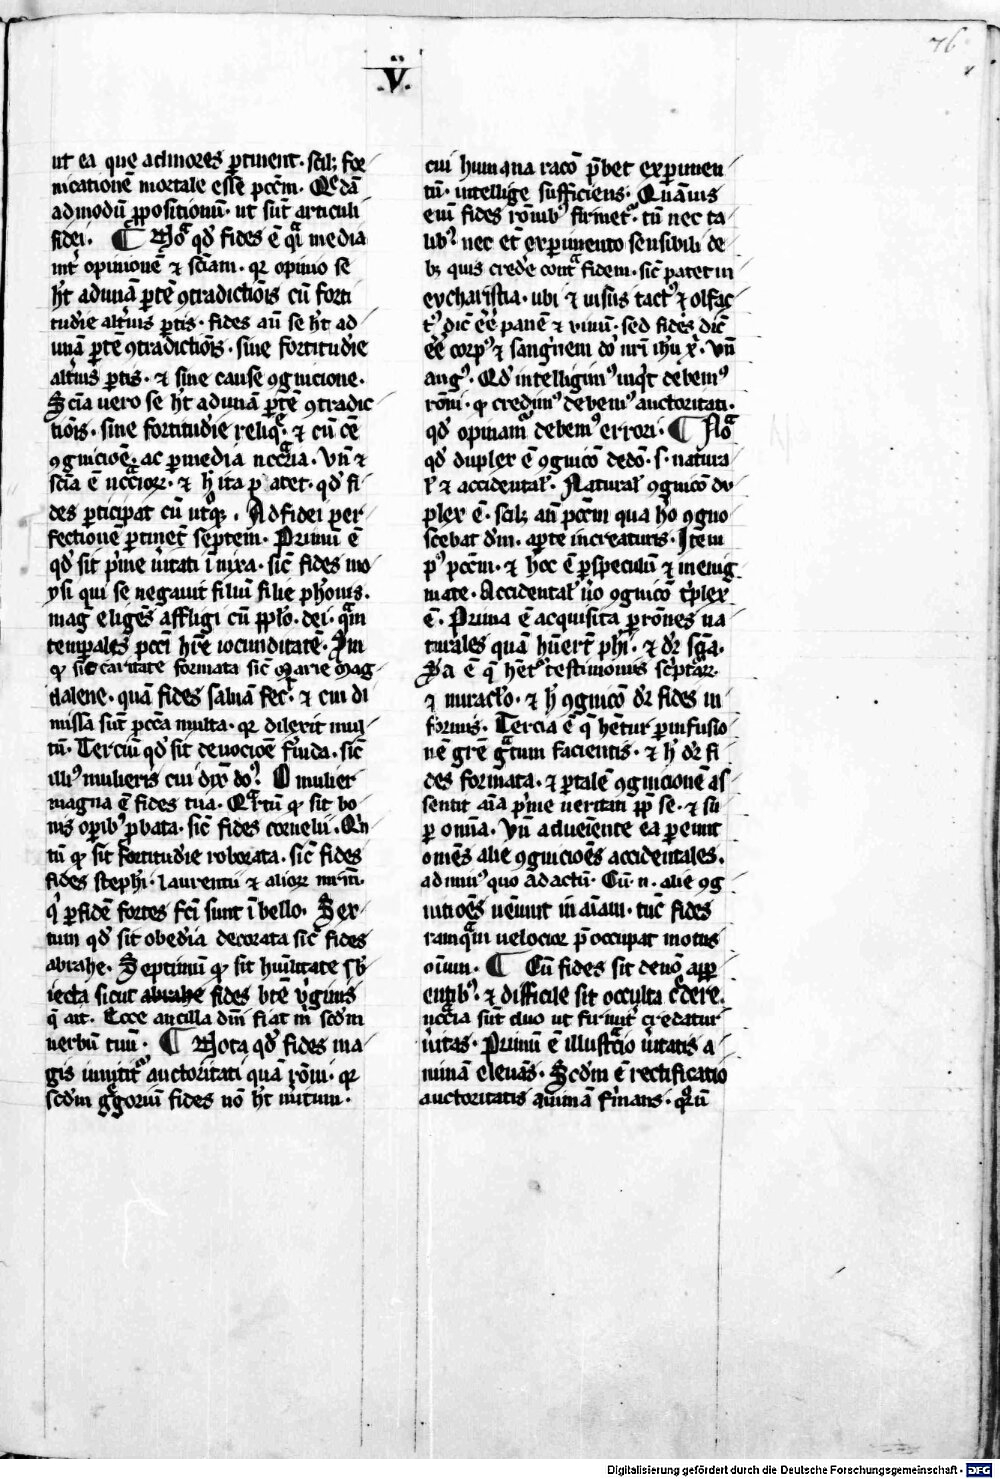 76
.v.
ut ea que ad mores ꝑtinent · scilꝫ for
nicationē mortale esse pcc̄m · Qͤdā
ad modū ꝓpositionū · ut sūt articuli
fidei · ¶ Noᵃ qd̛ fides ē qᵃi media
int̛ opinionē ⁊ sc̄iam · qꝛ opinio se
h̛t ad unā ꝑtē ꝯtradictiōis cū forti
tudīe alt̛ius ꝑtis · fides aū se h̛t ad
unā ꝑtē ꝯtradictiōis · sine fortitudīe
alt̛ius ꝑtis · ⁊ sine cause ꝯgnicione ·
Sc̄ia uero se ht ad unā ꝑtē ꝯtradic
tiōis · sine fortitudīe reliqͤ · ⁊ cū cē
ꝯgnicioē · ac ꝑ media ncc̄aria · Vn̄ ⁊
sc̄ia ē ncc̄ioꝝ · ⁊ h̛ ita patet · qd̛ fi
des ꝑticipat cū ut̛qꝫ · Ad fidei per
fectionē ꝑtinet septem · Primū ē
qd̛ sit p̛me ưitati īnixa · sic̄ fides mo
ysi qui se negauit filiū filie ph̛onis ·
mag̛ eliges̄ affligi cū ppl̛o · dei · qᵃm
temꝑales pcc̄i h̛re iocunditatē · Iīm
ꝙ sit caritate formata sic̄ marie mag
dalene · quā fides saluā fec̛ · ⁊ cui di
missa sūt pcc̄a multa · qꝛ dilexit mul
tū · Terciū qd̛ sit deuocioē f̛uida · sic̄
illiꝰ mulieris cui dix̄ doꝰ · O mulier
magna ē fides tua · Qᵃrtū ꝙ sit bo
nis oꝑibꝰ ꝓbata · sic̄ fides cornelii · Qⁱn
tū ꝙ sit fortitudīe roborata · sic̄ fides
fides steph̛i · laurentii ⁊ alioꝝ mr̄m̄ ·
qⁱ ꝑ fidē fortes fc̄i sunt ī bello · Sex
tum qd̛ sit obed̛ia decorata sic̄ fides
abrahe · Septimū ꝙ sit humilitate sb̛
iecta sicut abrahe fides bt̄e ưginis
q̄ ait · Ecce ancilla dn̄i fiat m̄ scd̛m
uerbū tuū · ¶ Nota qd̛ fides ma
gis innitit̛ᵃ auctoritati quā rōni · qꝛ
scd̛m gͤgoriū fides nō h̛t m̛itum ·
cui humana racō p̄bet exꝑimen
tū · intellige sufficiens · Quāuis
eni fides rōnibꝰ firmet̛ᵃ · tn̄ nec ta
libꝰ nec et̄ exꝑimento sensibili de
bꝫ quis cred̛e contᵃ fidem · sic̄ patet in
eucharistia · ubi ⁊ uisus tactꝰ ⁊ olfac
tꝰ dic̄ ēē panē ⁊ vinū · sed fides dic̄
ēē corpꝰ ⁊ sang̛nem dơ nr̄i ih̄u x̛ · Vn̄
augꝰ · Qd̛ intelligimꝰ inq̛t debemꝰ
rōni · ꝙ credimꝰ debemꝰ auctoritati ·
qd̛ opinamᵃ debemꝰ errori · ¶ Noᵃ
qd̛ duplex ē ꝯgnicō de dō · s · natura
l̛ ⁊ accidental̛ · Natural̛ ꝯgnicō du
plex ē · scilꝫ an̄ pcc̄m qua h̛o ꝯgno
scebat d̛m · aꝑte in creaturis · Item
pꝰ pcc̄m · ⁊ hec ē ꝑ speculū ⁊ in enig
mate · Accidental̛ ưo ꝯgnicō t̛plex
ē · Prima ē acquisita ꝑ rōnes na
turales quā h̛uert̄ ph̛i · ⁊ d̛r scᵃa ·
Sᵃa ē q̄ h̄etᵃ testimoniis scpt̛aꝝ ·
⁊ miracl̛o · ⁊ h̛ ꝯgnicō d̛r fides in
formis · Tercia ē q̄ h̄etur ꝑ infusio
nē gr̄e gᵃtum facientis · ⁊ h̛ d̛r fi
des formata · ⁊ ꝑ talē ꝯgnicionē as
sentit aīa p̛me ueritati ꝓp̄ se · ⁊ su
ꝑ omīa · Vn̄ adueiente ea ꝑeunt
omēs alie ꝯgnicioēs accidentales ·
ad miniꝰ quo ad actū · Cū · n · alie ꝯg
nitioēs ueniūt in aīam · tūc fides
tamqᵃm uelocior p̄occupat motus
oīum · ¶ Cū fides sit de nō appa
entibꝰ · ⁊ difficile sit occulta c̛dere ·
ncc̄ia sūt duo ut firmit̛ credatur
ưitas · Primū ē illustᵃcio ưitatis a
nimā eleuās · Scd̛m ē rectificatio
auctoritatis animā f̛mans · qᵃrtū
Digitalisierung gefördert durch die Deutsche Forschungsgemeinschaft · DFG